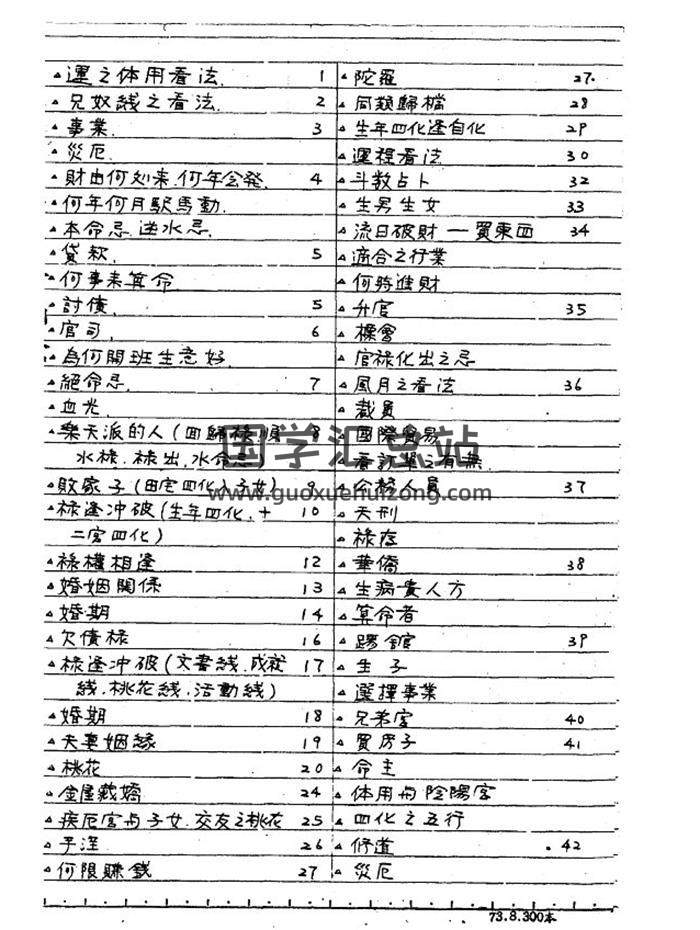 ▵運之体用看法. 1
▵兄奴线之看法. 2
▵事業. 3
▵災厄.
▵財由何处来.何年会発. 4
▵何年何月駅馬動.
▵本命忌.逆水忌.
▵貸款. 5
▵何事来算命
▵討債. 5
▵官司. 6
▵為何開班生意好.
▵絕命忌. 7
▵血光.
▵樂天派的人(回歸祿.順 8
水祿.祿出.水命忌)
▵敗家子(田宅四化入子女) 9
▵祿逢冲破(生年四化.十 10
二宮四化)
▵祿權相逢 12
▵婚姻關係 13
▵婚期 14
▵欠債祿 16
▵祿逢冲破(文書线.成就 17
线.桃花线.活動线)
▵婚期 18
▵夫妻姻緣 19
▵桃花 20
▵金屋藏嬌 24
▵疾厄宮与子女.交友之桃花 25
▵手淫 26
▵何限賺錢 27
▵陀羅 27.
▵同類歸檔 28
▵生年四化逢自化 29
▵運程看法 30
▵斗數占卜 32
▵生男生女 33
▵流日破財一買東西 34
▵適合之行業
▵何時進財
▵升官 35
▵標會
▵官祿化出之忌
▵風月之看法 36
▵裁員
▵國際貿易
▵看訂單之有無.
▵公務人員 37
▵天刑
▵祿存
▵華僑 38
▵生病貴人方
▵算命者
▵踢館 39
▵生子
▵選擇事業
▵兄弟宮 40
▵買房子 41
▵命主
▵体用与陰陽宮
▵四化之五行
▵修道 .42
▵災厄
国学汇总站
www.guoxuehuizong.com
73.8.300本